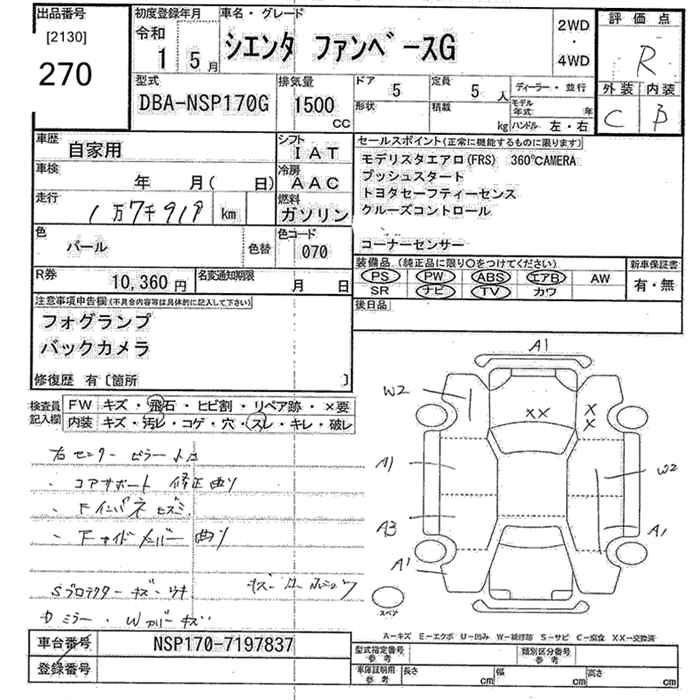 出品番号
[2130]
270
初度登録年月
令和
1 5月
車名・グレード
シエンタ ファンベースG
2WD
・
4WD
評価点
R
外装 内装
C B
型式
DBA-NSP170G
排気量
1500
CC
ドア 5
形状
定員 5 人
積載 kg
ディーラー・並行
モデル年式 年
ハンドル 左・右
車歴
自家用
シフト
IAT
車検
年 月( 日)
冷房
AAC
走行
1万7千919 km
燃料
ガソリン
色
パール
色替
色コード
070
R券
10,360円
名変通知期限
月 日
セールスポイント(正常に機能するものに限ります)
モデリスタエアロ(FRS) 360℃AMERA
プッシュスタート
トヨタセーフティーセンス
クルーズコントロール
コーナーセンサー
装備品(純正品に限り○をつけてください)
PS PW ABS エアB AW
SR ナビ TV カワ
新車保証書
有・無
後日品
注意事項申告欄(不具合内容等は具体的に記入して下さい)
フォグランプ
バックカメラ
修復歴 有〔箇所 〕
検査員記入欄
FW キズ・飛石・ヒビ割・リペア跡・×要
内装 キズ・汚レ・コゲ・穴・スレ・キレ・破レ
右センターピラー
・コアサポート 修正 曲り
・Fインパネ
・Fサイドメンバー 曲り
Sプロテクターキズ・ワレ
ミラー・Wカバーキズ
A1
W2
XX
X
X
A1
W2
A3
A1
A1
スペア
A-キズ E-エクボ U-凹み W-補修跡 S-サビ C-腐食 XX-交換済
車台番号
NSP170-7197837
登録番号
型式指定番号
参考
類別区分番号
参考
車庫証明用
参考
長さ cm
幅 cm
高さ cm